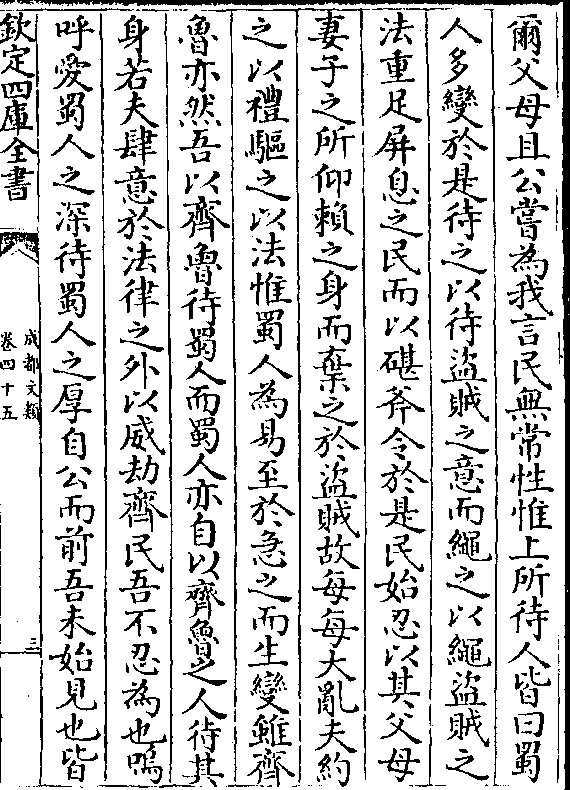 爾父母且公嘗為我言民無常性惟上所待人皆曰蜀
人多變於是待之以待盜賊之意而繩之以繩盜賊之
法重足屏息之民而以碪斧令於是民始忍以其父母
妻子之所仰賴之身而棄之於盜賊故每每大亂夫約
之以禮驅之以法惟蜀人為易至於急之而生變雖齊
魯亦然吾以齊魯待蜀人而蜀人亦自以齊魯之人待其
身若夫肆意於法律之外以威劫齊民吾不忍為也嗚
呼愛蜀人之深待蜀人之厚自公而前吾未始見也皆
欽定四庫全書
成都文類
卷四十五
三